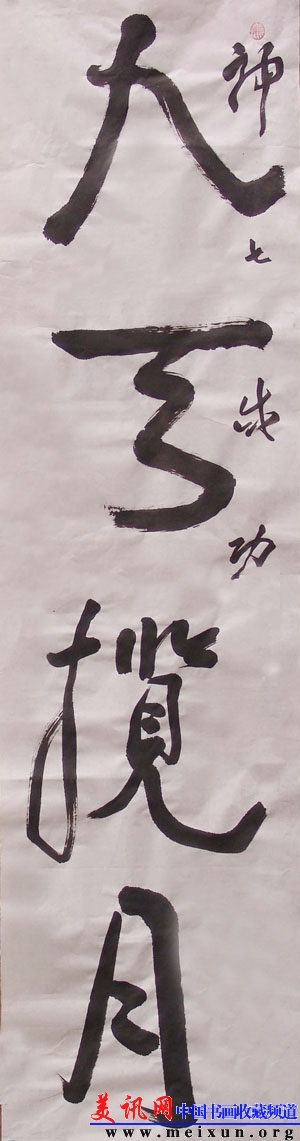 神七成功
九天攬月
美讯网 中国书画收藏频道
www.meixun.org.cn